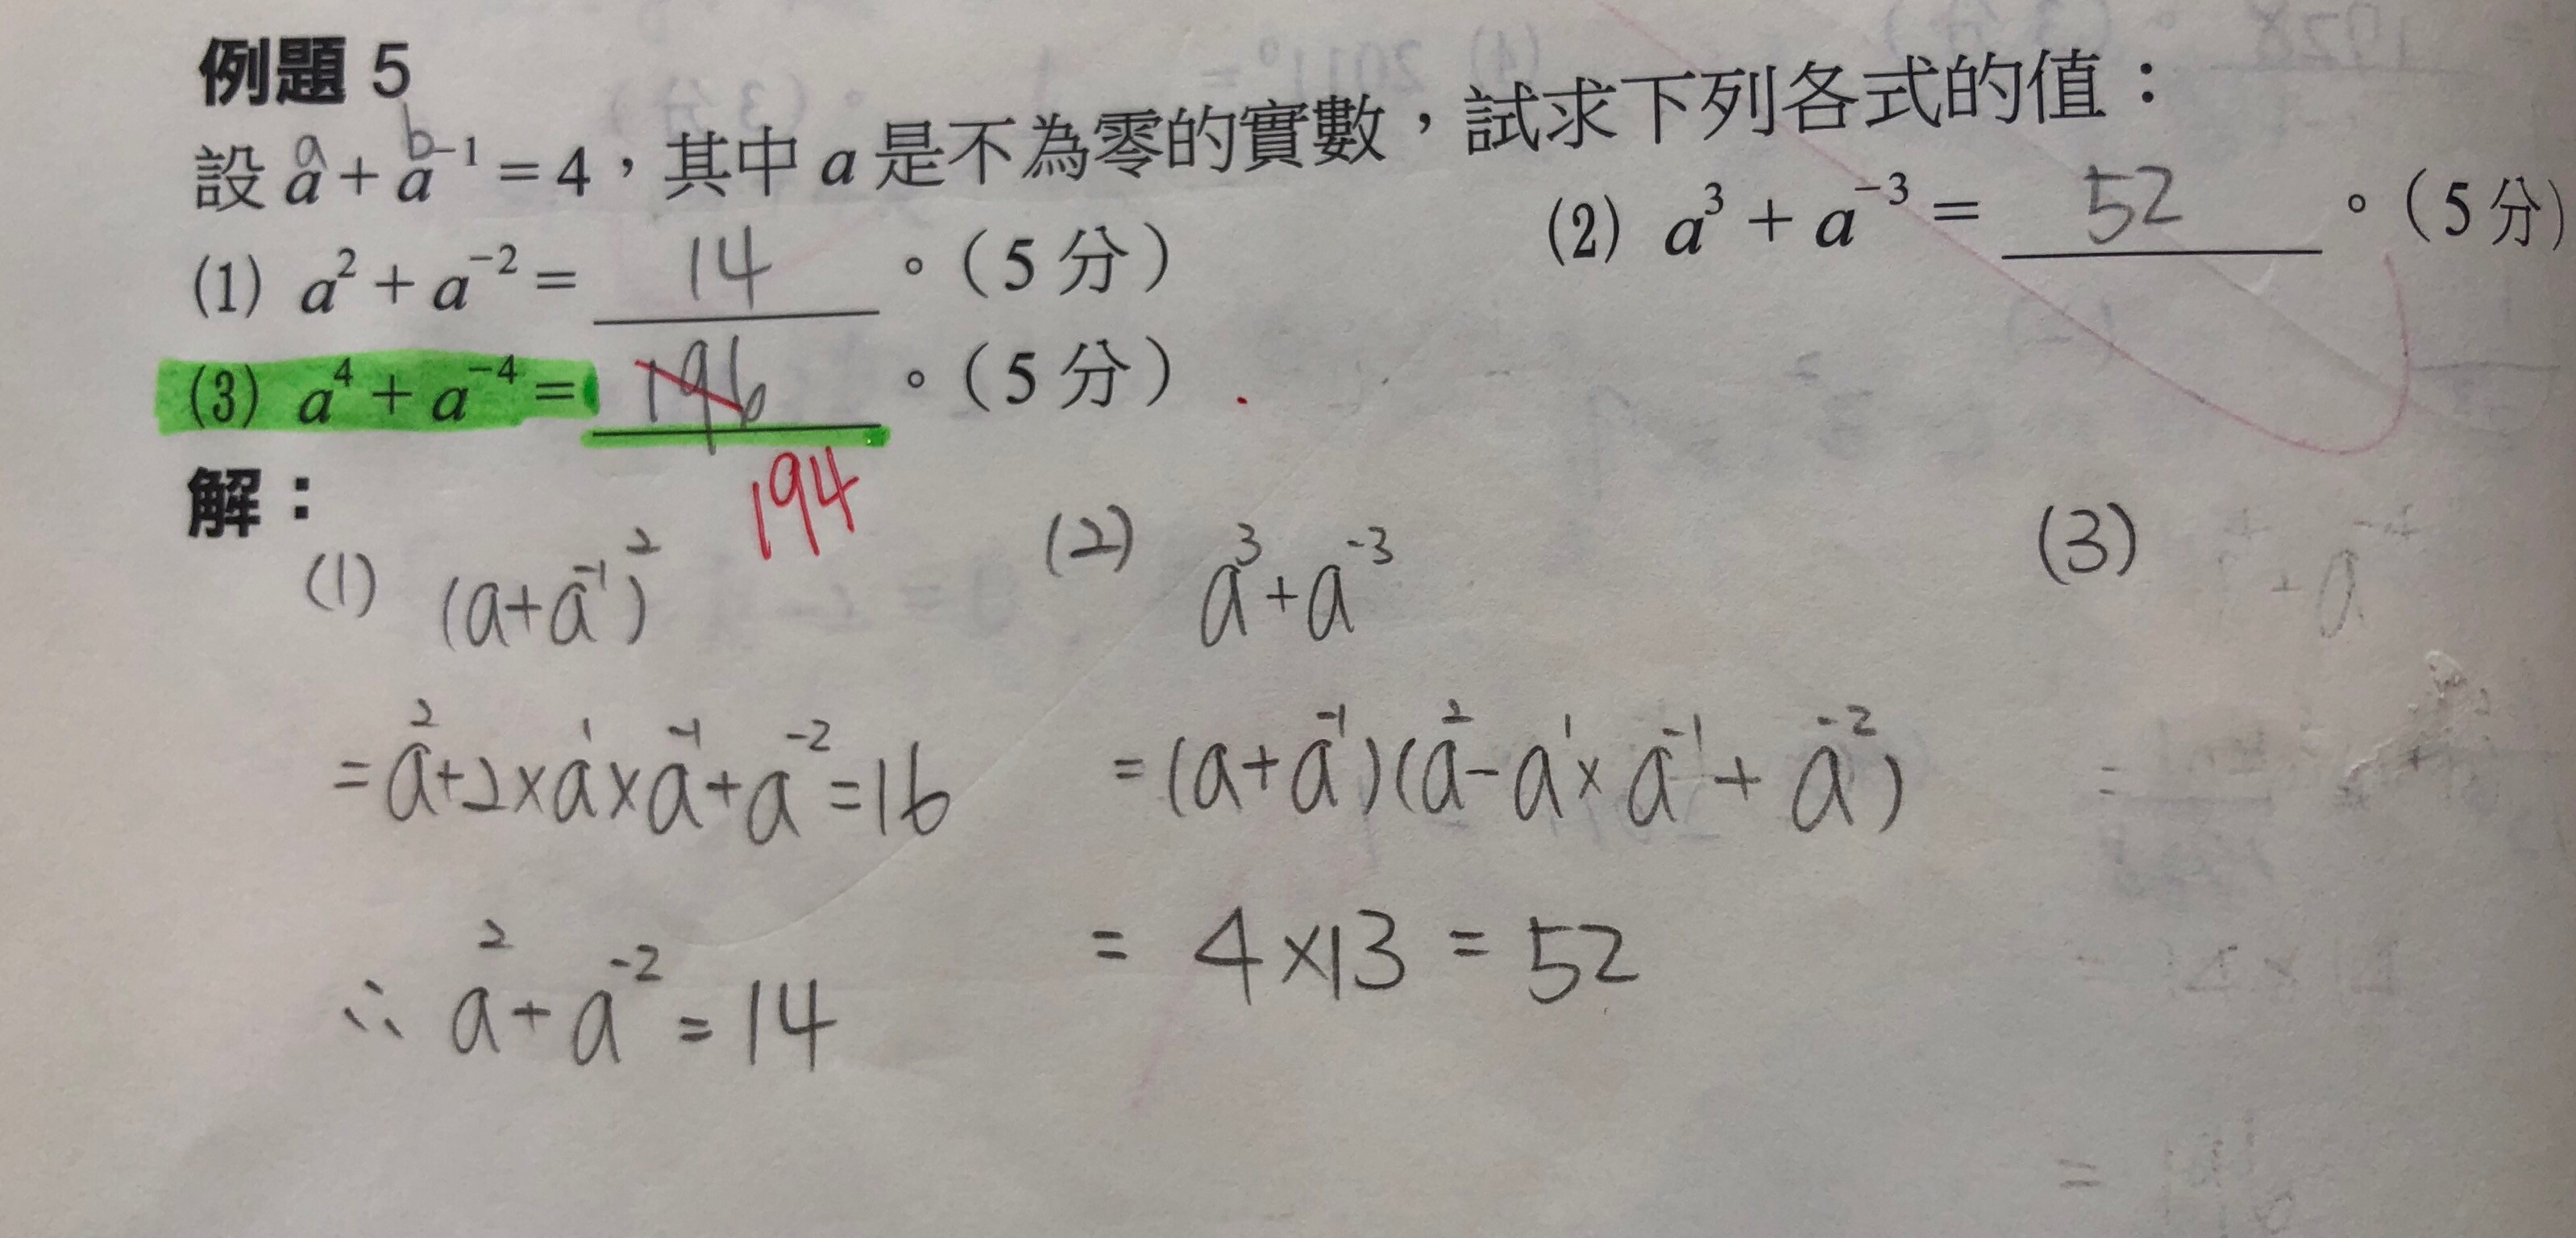 例題 5
設 a + a⁻¹ = 4,其中 a 是不為零的實數,試求下列各式的值:
a b
(1) a² + a⁻² = 14 。(5 分)
(2) a³ + a⁻³ = 52 。(5 分)
(3) a⁴ + a⁻⁴ = 196 。(5 分)
194
解:
(1) (a+a⁻¹)²
=a²+2×a¹×a⁻¹+a⁻²=16
∴ a²+a⁻²=14
(2) a³+a⁻³
=(a+a⁻¹)(a²-a¹×a⁻¹+a⁻²)
= 4×13 = 52
(3)